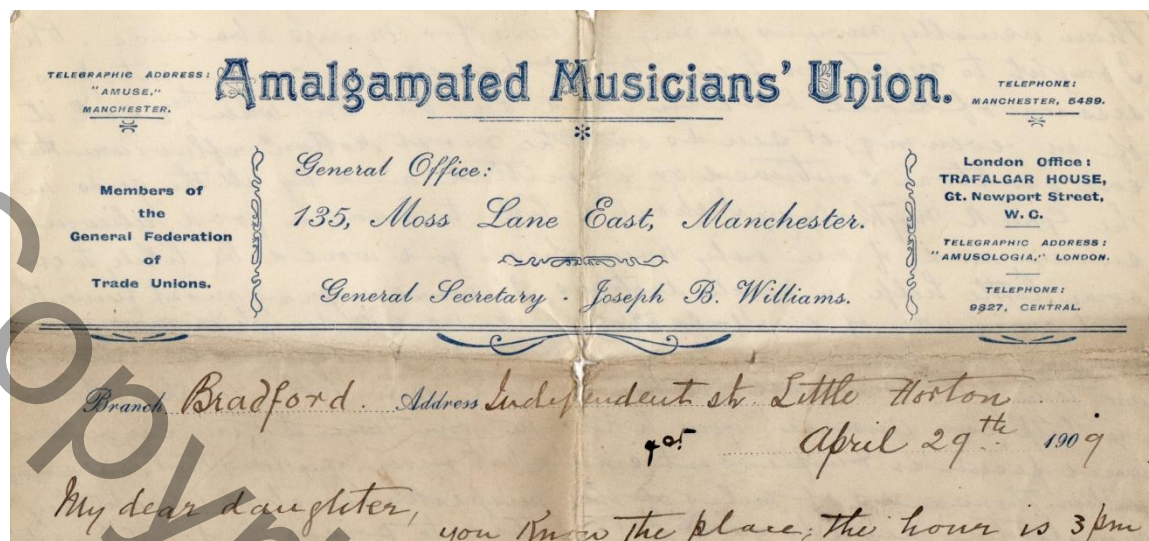 Amalgamated Musicians' Union.
TELEGRAPHIC ADDRESS:
"AMUSE,"
MANCHESTER.
TELEPHONE:
MANCHESTER, 5489.
Members of
the
General Federation
of
Trade Unions.
General Office:
135, Moss Lane East, Manchester.
General Secretary - Joseph B. Williams.
London Office:
TRAFALGAR HOUSE,
Gt. Newport Street,
W. C.
TELEGRAPHIC ADDRESS:
"AMUSOLOGIA," LONDON.
TELEPHONE:
9827, CENTRAL.
Branch Bradford. Address Independent st. Little Horton
April 29th 1909
My dear daughter,
you know the place; the hour is 3 pm
Copy